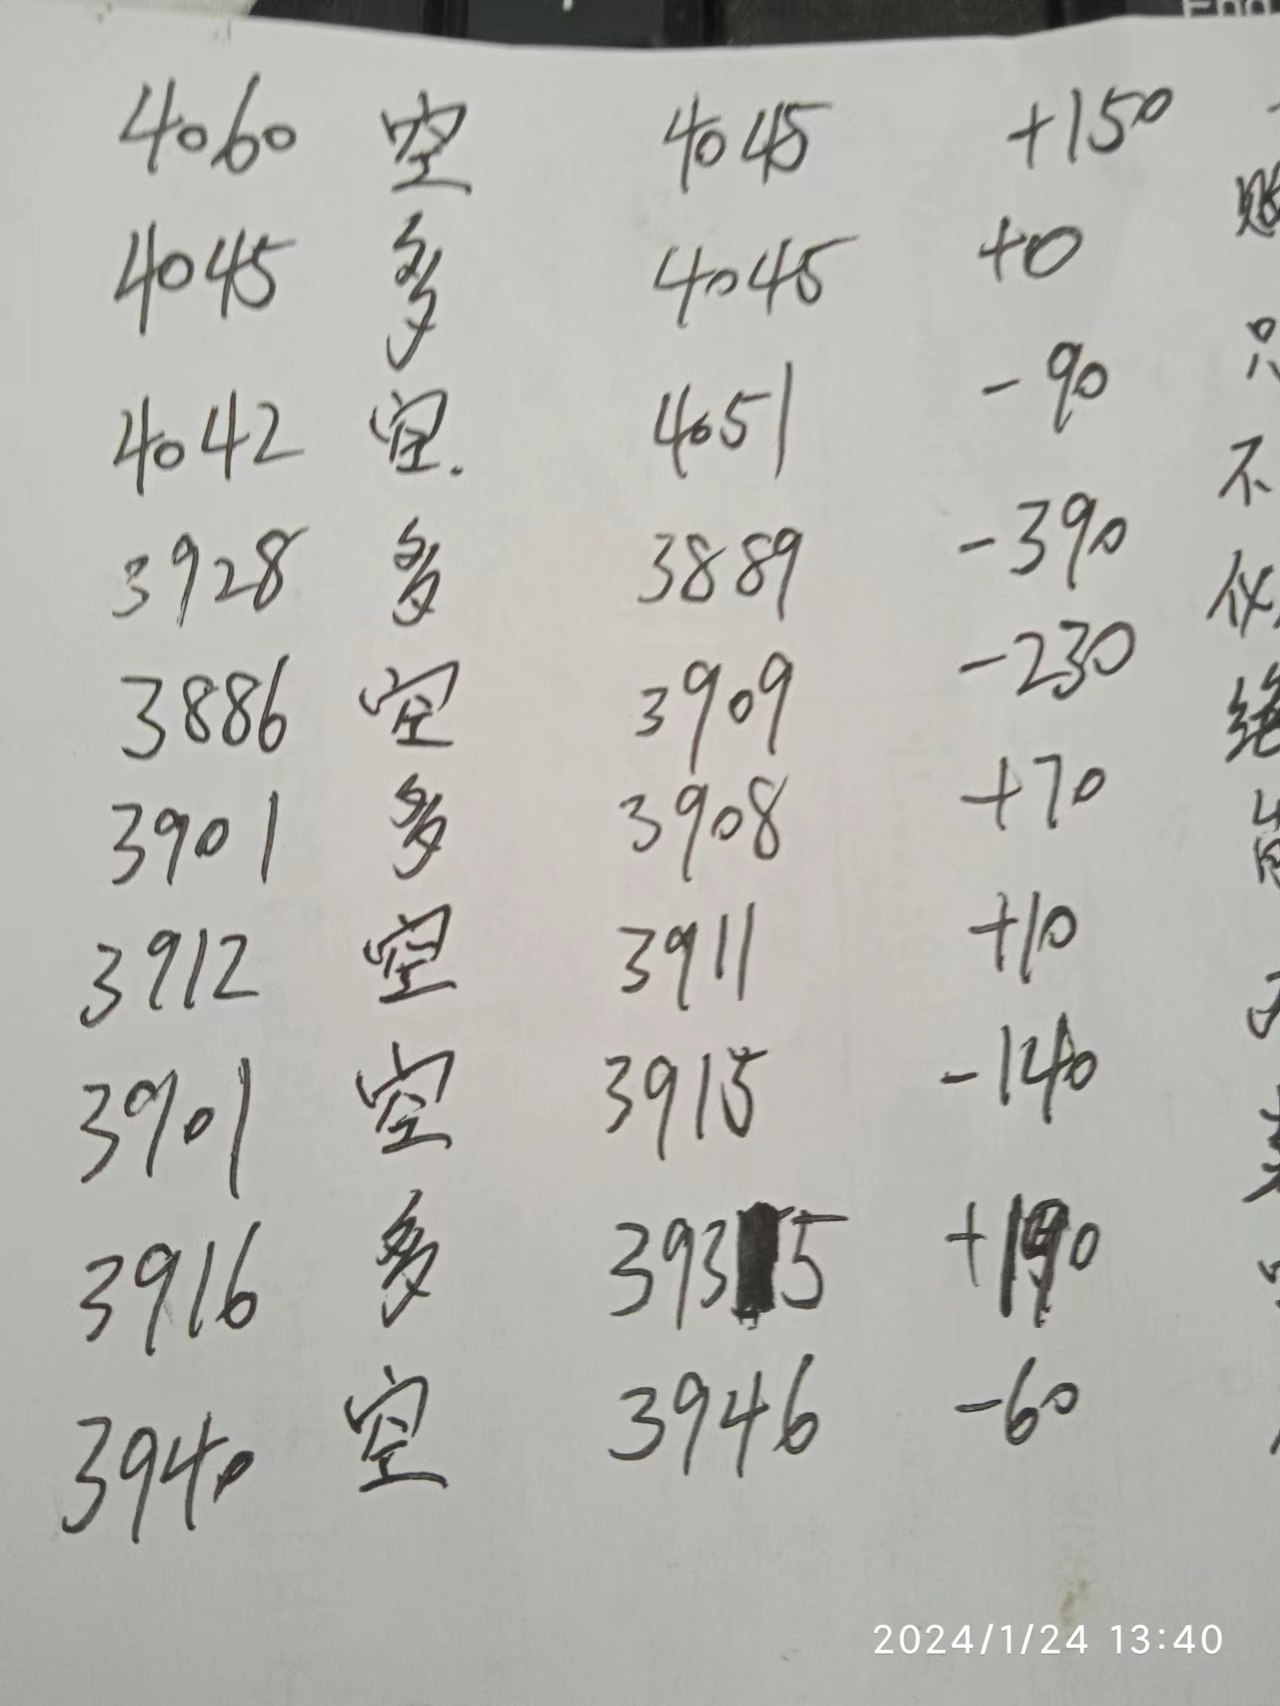 4060 空 4045 +150
4045 多 4045 +0
4042 空. 4051 -90
3928 多 3889 -390
3886 空 3909 -230
3901 多 3908 +70
3912 空 3911 +10
3901 空 3915 -140
3916 多 3935 +190
3940 空 3946 -60
只
不
绝
2024/1/24 13:40